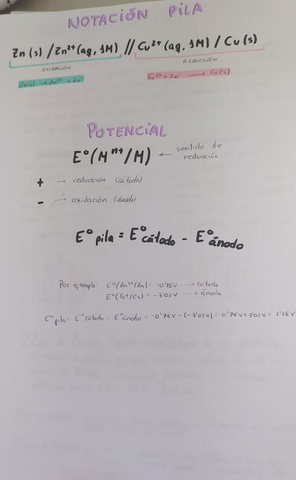 NOTACIÓN PILA
Zn(s) / Zn²⁺(aq, 1M) // Cu²⁺(aq, 1M) / Cu(s)
OXIDACIÓN REDUCCIÓN
Zn(s) → Zn²⁺ + 2e⁻ Cu²⁺ + 2e⁻ → Cu(s)
POTENCIAL
E°(Mⁿ⁺/M) ← sentido de
reducción
+ → reducción (cátodo)
- → oxidación (ánodo)
E° pila = E° cátodo - E° ánodo
Por ejemplo: E°(Zn²⁺/Zn) = -0'76V → cátodo
= -3'02V → ánodo
E° pila = E° cátodo - E° ánodo = -0'76V - (-3'02V) = -0'76V + 3'02V =